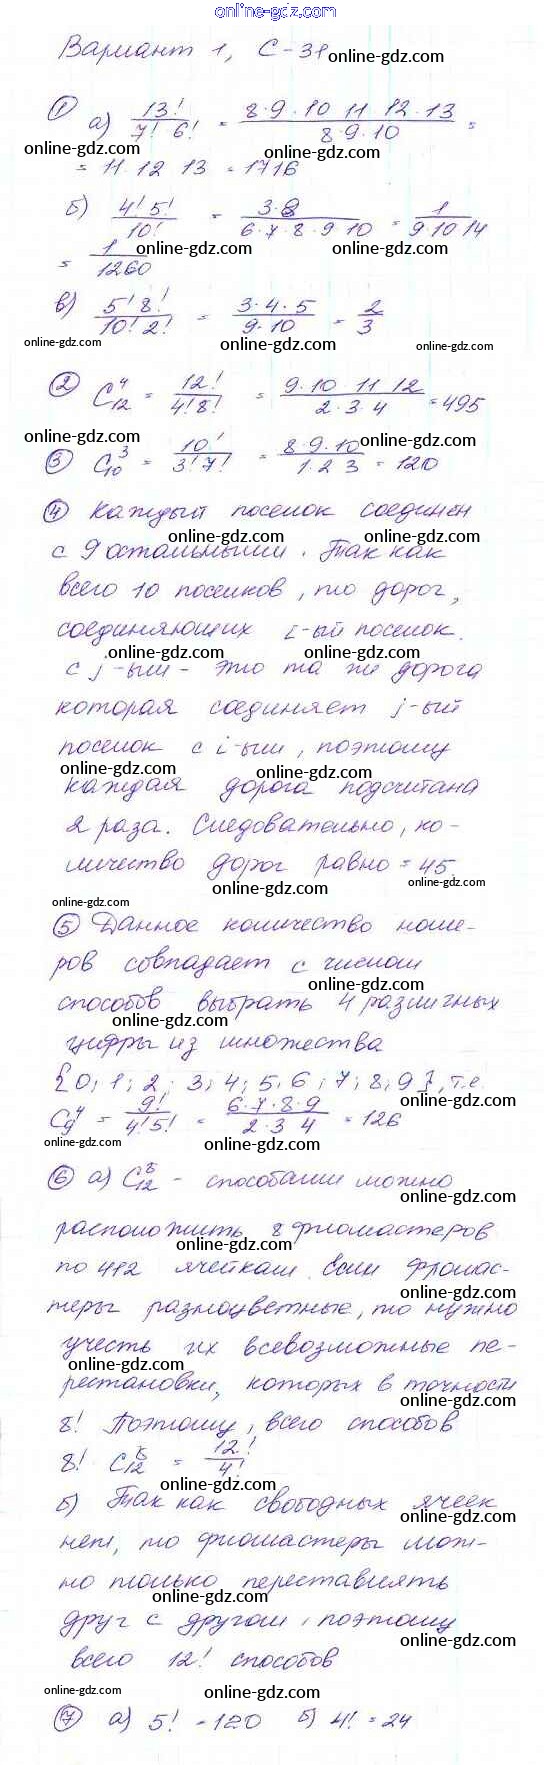 online-gdz.com
Вариант 1, С-31
online-gdz.com
① а) 13!/7! 6! = 8·9·10 11 12·13/8·9·10 =
online-gdz.com
online-gdz.com
= 11 12 13 = 1716
б) 4! 5!/10! = 3·8/6·7·8·9·10 = 1/9·10 14
online-gdz.com
online-gdz.com
= 1/1260
в) 5! 8!/10! 2! = 3·4·5/9·10 = 2/3
online-gdz.com
online-gdz.com
online-gdz.com
② C₁₂⁴ = 12!/4! 8! = 9·10 11 12/2·3·4 = 495
online-gdz.com
online-gdz.com
③ C₁₀³ = 10!/3! 7! = 8·9·10/1·2 3 = 120
online-gdz.com
④ Каждый поселок соединен
online-gdz.com
с 9 остальными. Так как
online-gdz.com
всего 10 поселков, то дорог,
online-gdz.com
соединяющих i-ый поселок
online-gdz.com
с j-ым - это та же дорога
которая соединяет j-ый
поселок с i-ым, поэтому
online-gdz.com
online-gdz.com
каждая дорога подсчитана
2 раза. Следовательно, ко-
личество дорог равно = 45.
online-gdz.com
online-gdz.com
online-gdz.com
⑤ Данное количество номе-
ров совпадает с числом
online-gdz.com
способов выбрать 4 различных
online-gdz.com
цифры из множества
{0; 1; 2; 3; 4; 5; 6; 7; 8; 9}, т.е.
online-gdz.com
C₉⁴ = 9!/4! 5! = 6·7·8·9/2·3 4 = 126
online-gdz.com
online-gdz.com
⑥ а) C₁₂⁸ - способами можно
online-gdz.com
расположить 8 фломастеров
online-gdz.com
по 412 ячейкам. Если фломас-
online-gdz.com
теры разноцветные, то нужно
учесть их всевозможные пе-
online-gdz.com
рестановки, которых в точности
online-gdz.com
8! Поэтому, всего способов
8! C₁₂⁸ = 12!/4!
online-gdz.com
б) Так как свободных ячеек
online-gdz.com
нет, то фломастеры мож-
но только переставлять
online-gdz.com
друг с другом, поэтому
online-gdz.com
всего 12! способов
online-gdz.com
online-gdz.com
⑦ а) 5! = 120 б) 4! = 24